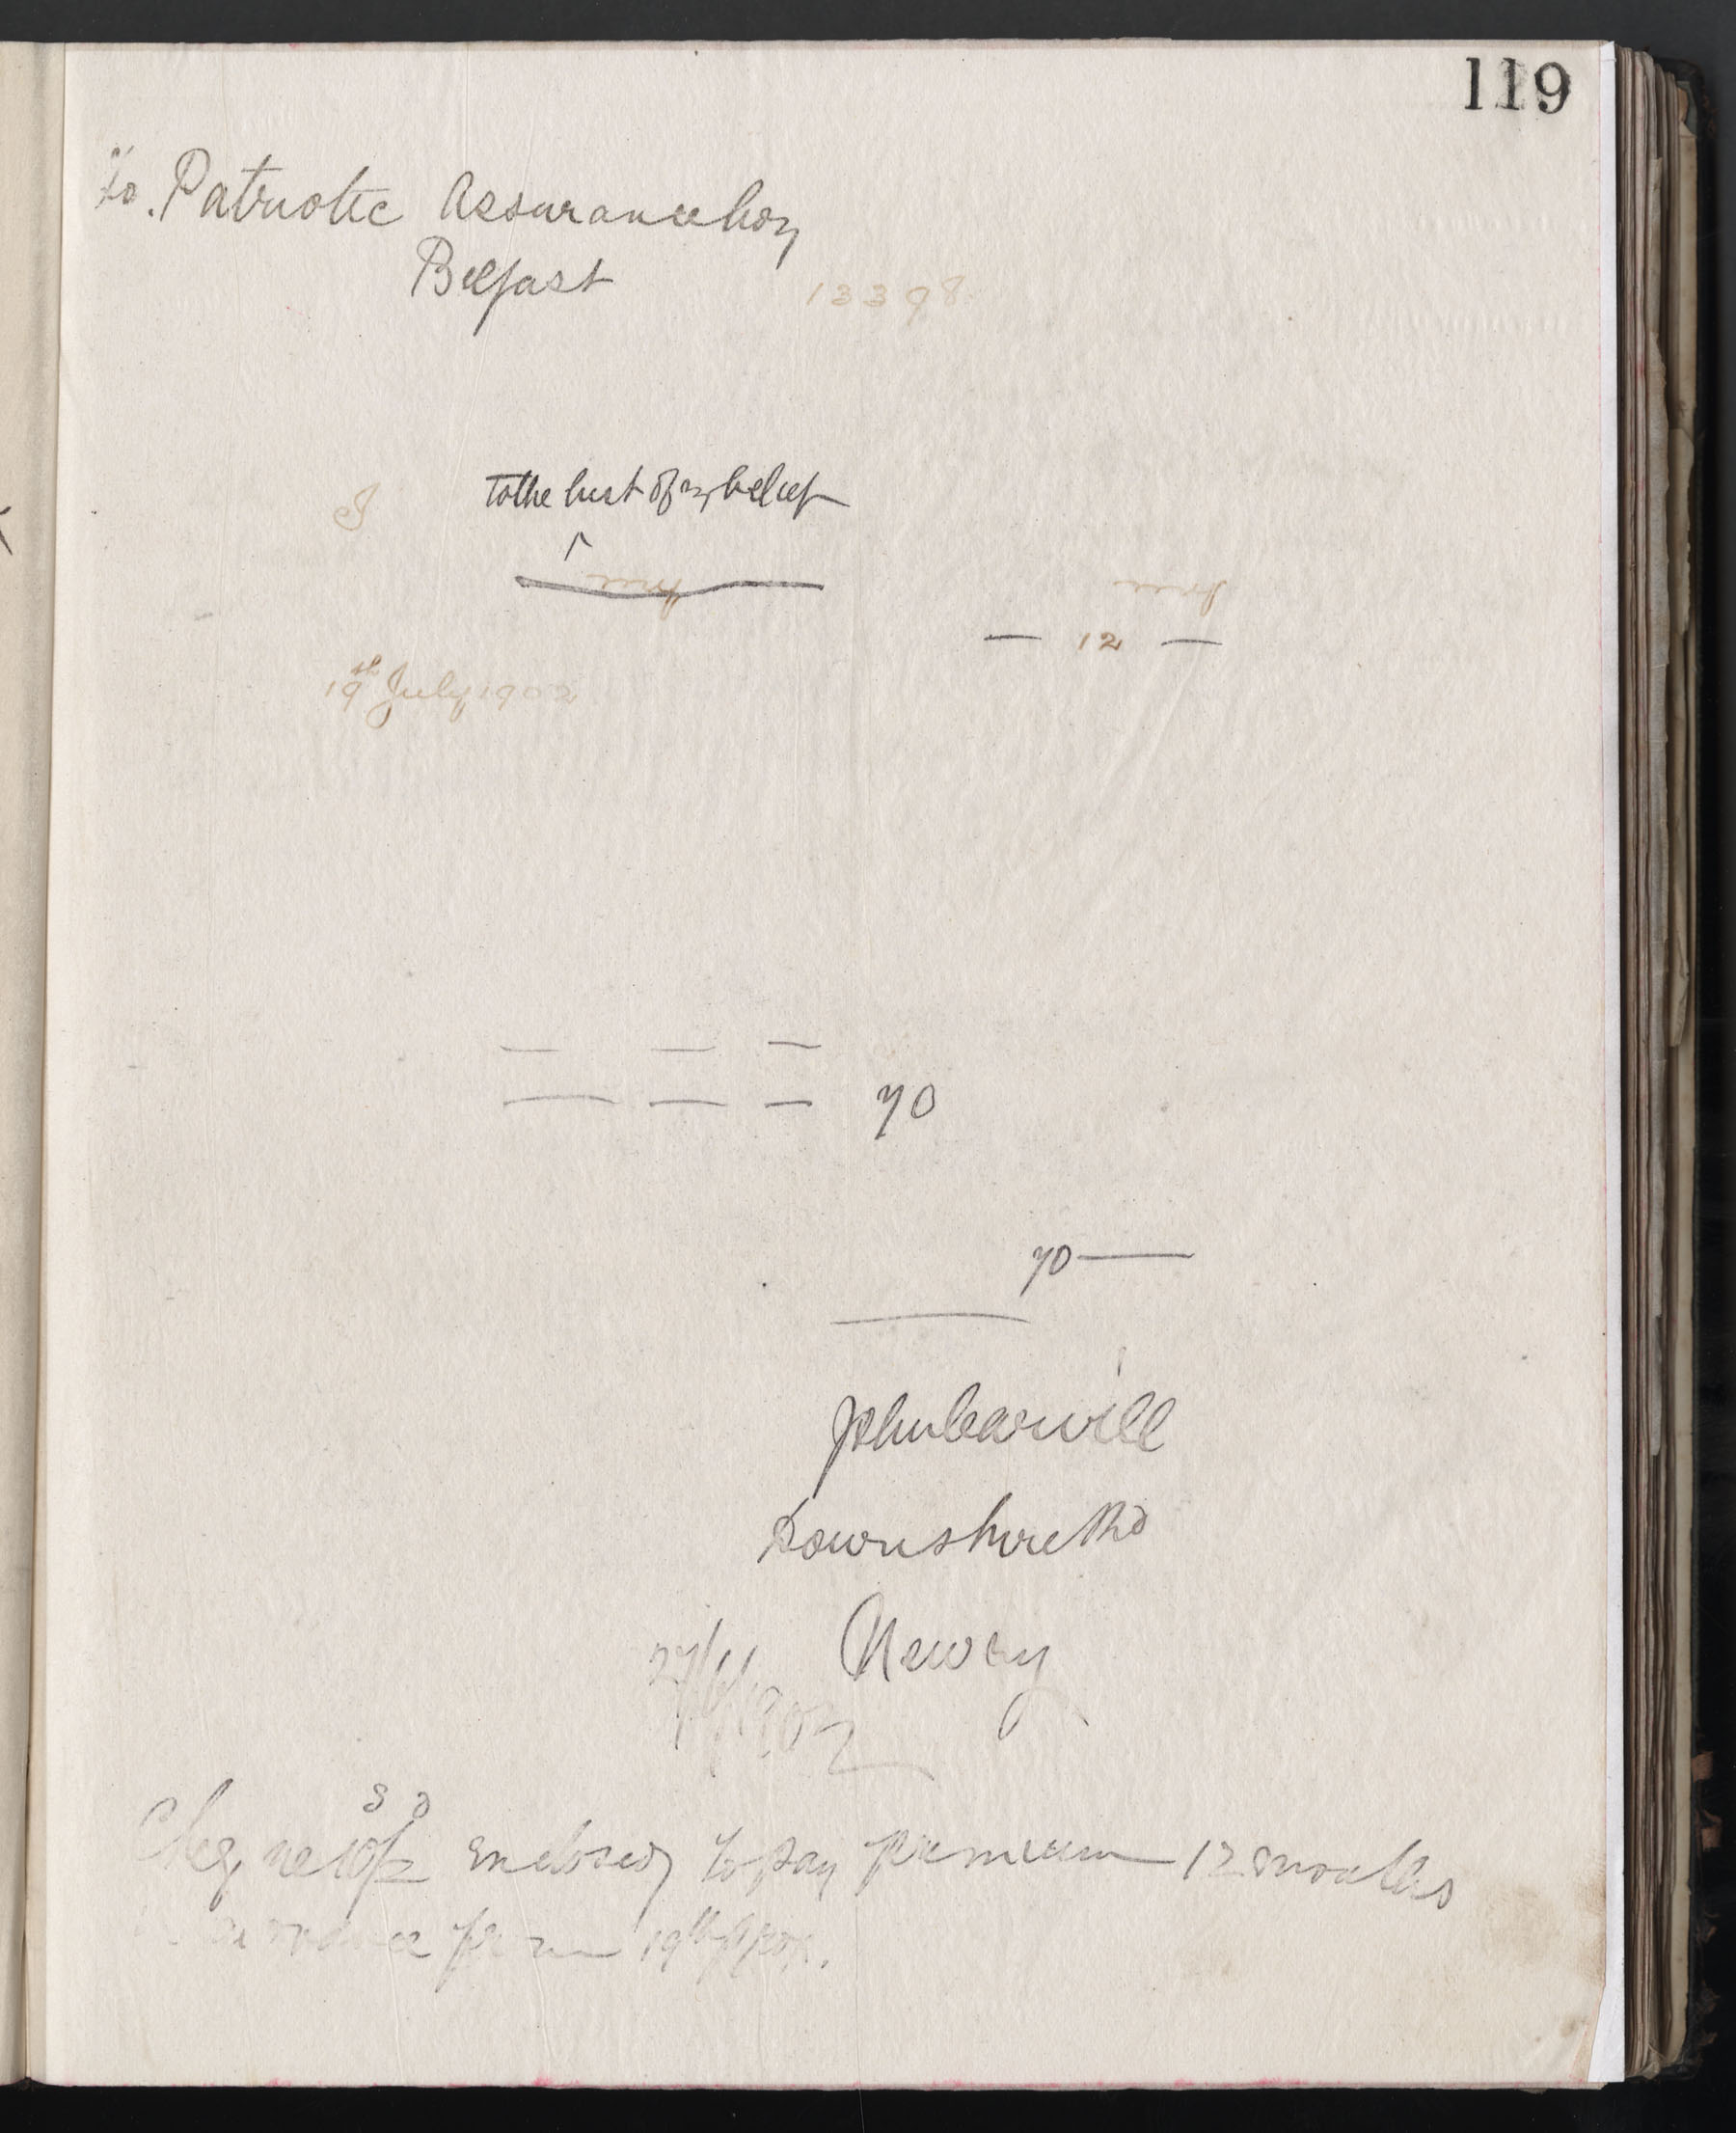 119
To. Patriotic Assurance Coy
Belfast
13398
I
to the best of my belief
free
free
— 12 —
19th July 1902
— — —
— — — 70
70 —
John Carvill
Downshire Rd
Newry
27/6/1902
s d
Cheq enclosed to pay premium 12 months
from 19th